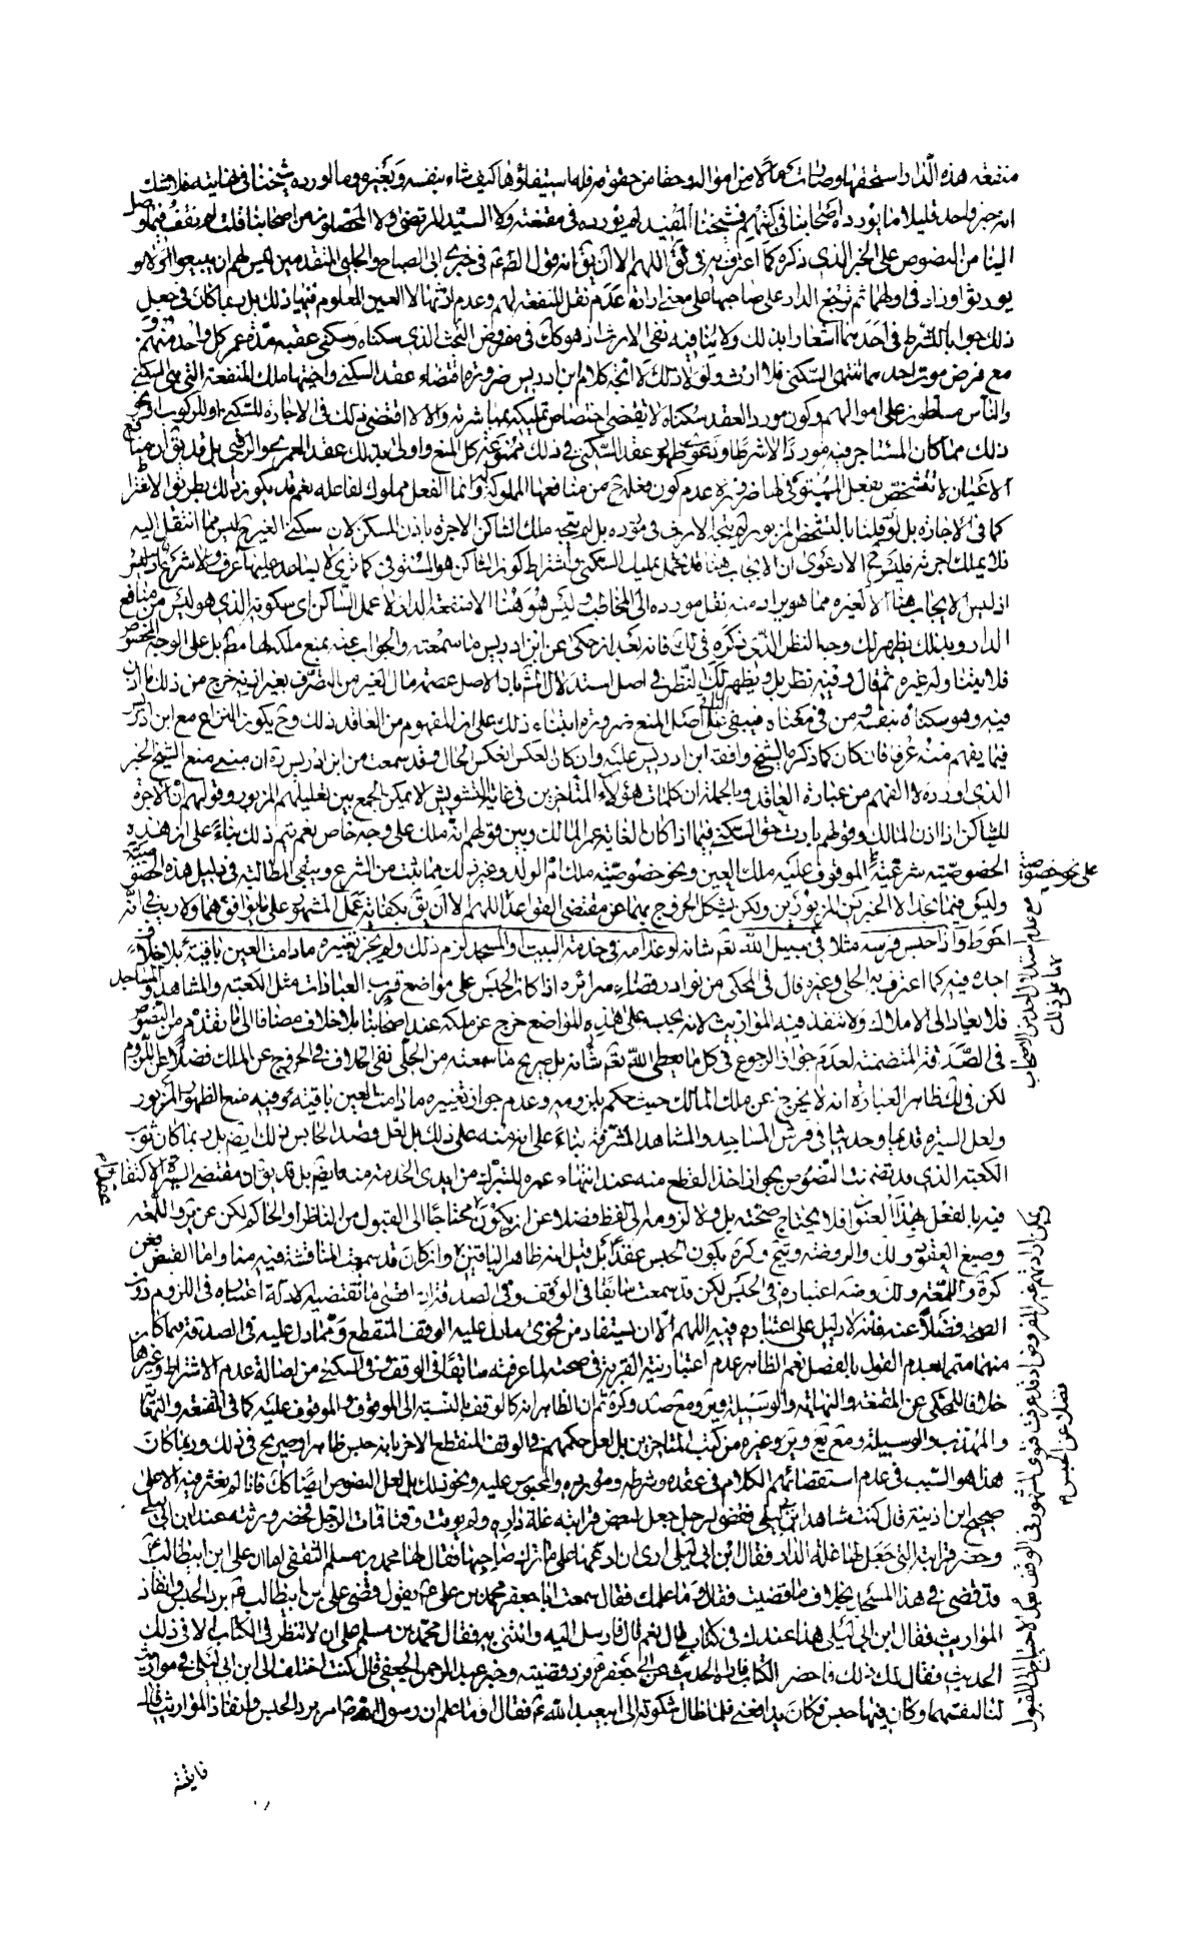 منفعة هذه الدار استحقها وصارت مالا من امواله وحقا من حقوقه فله استيفاؤها كيف شاء بنفسه وبغيره وما اورده شيخنا في نهايته فلا شك
انه خبر واحد قليلا ما يورده اصحابنا في كتبهم فشيخنا المفيد لم يورده في مقنعته ولا السيد المرتضى ولا المحصلون من اصحابنا قلت لم نقف فيما وصل
الينا من النصوص على الخبر الذي ذكره كما اعترف به في اللهم الا ان يق انه قول الصادق ع في خبري ابي الصباح والحلبي المتقدمين ليس لهم ان يبيعوا ولا
يورثوا وزاد في اولهما ثم ترجع الدار على صاحبها على معنى ارادة عدم نقل المنفعة لهم وعدم ارثها لا العين المعلوم فيها ذلك بل ربما كان في جعل
ذلك جوابا للشرط في احدهما اشعارا بذلك ولا ينافيه نفي الارث اذ هو كك في مفروض البحث الذي سكناه وسكنى عقبه مدة عمر كل واحد منهم
مع فرض موت احدهما تنتهي السكنى فلا ارث ولولا ذلك لاتجه كلام ابن ادريس ضرورة اقتضاء عقد السكنى واختها ملك المنفعة التي هي السكنى
والناس مسلطون على اموالهم وكون مورد العقد سكناه لا يقتضي اختصاص تمليكه بمباشرته والا لاقتضى ذلك في الاجارة للسكنى او للركوب او نحو
ذلك مما كان المستاجر فيه موردا لا شرطا ودعوى ظهور عقد السكنى في ذلك ممنوعة كل المنع واولى بذلك عقد العمرى والرقبى بل قد يق ان منافع
الاعيان لا تتشخص بفعل المستوفي لها ضرورة عدم كون فعله ح من منافعها المملوكة وانما الفعل مملوك لفاعله نعم قد يكون ذلك بطريق الاشتراط
كما في الاجارة بل لو قلنا بالتشخص المزبور لم يتجه الارث في مورده بل لم يتجه ملك الساكن الاجرة باذن المسكن لان سكنى الغير ح ليس مما انتقل اليه
فلا يملك اجرته فليس ح الا دعوى ان الايجاب هنا قد تحمل تمليك السكنى واشتراط كون الساكن هو المستوفي كما ترى لا يساعد عليها عرف ولا شرع
اذ ليس الايجاب هنا الا كغيره مما هو يراد منه نقل مورده الى المخاطب وليس هو هنا الا منفعة الدار لا عمل الساكن اي سكونه الذي هو ليس من منافع
الدار وبذلك يظهر لك وجه النظر الذي ذكره في لك فانه بعد ان حكى عن ابن ادريس ما سمعته والجواب عنه بمنع ملكه لها مطلقا بل على الوجه المخصوص
فلا يتناول غيره ثم قال وفيه نظر بل ويظهر لك النظر في اصل استدلال المش بان الاصل عصمة مال الغير من التصرف بغير اذنه خرج من ذلك ما اذن
فيه وهو سكناه بنفسه ومن في معناه فيبقى الباقي على اصل المنع ضرورة ابتناء ذلك على ان المفهوم من العاقد ذلك وح يكون النزاع مع ابن ادريس
فيما يفهم منه عرفا فان كان كما ذكره الشيخ وافقه ابن ادريس عليه وان كان العكس انعكس الحال وقد سمعت من ابن ادريس ره ان مبنى منع الشيخ الخبر
الذي اورده لا الفهم من عبارة العاقد وبالجملة ان كلمات هؤلاء المتاخرين في غاية التشويش لا يمكن الجمع بين تعليلهم المزبور وقولهم ان الاجرة
للساكن اذا اذن المالك وقولهم بارث حق السكنى فيما اذا كان الغاية عمر المالك وبين قولهم انه ملك على وجه خاص نعم يتم ذلك بناء على ان هذه
الخصوصية شرعية الموقوف عليه ملك العين ونحو خصوصيته ملك ام الولد وغير ذلك مما ثبت من الشرع ويبقى المطالبة في دليل هذه الخصوصية
وليس فيما نجد الا الخبرين المزبورين ولكن يشكل الخروج بهما عن مقتضى القواعد اللهم الا ان يق بكفاية عمل المشهور على ما يوافقهما ولا ريب في انه
احوط واذا حبس فرسه مثلا في سبيل الله تعالى شانه او غلامه في خدمة البيت او المسجد لزم ذلك ولم يجز تغييره ما دامت العين باقية بلا خلاف
اجده فيه كما اعترف به الحلي وغيره قال في المحكي من نوادر قضاء سرائره اذا كان الحبس على مواضع قرب العبادات مثل الكعبة والمشاهد والمساجد
فلا يعاد الى الاملاك ولا تنفذ فيه المواريث لانه يحبسه على هذه المواضع خرج عن ملكه عند اصحابنا بلا خلاف مضافا الى ما تقدم من النصوص
في الصدقة المتضمنة لعدم جواز الرجوع في كل ما يعطي الله تعالى شانه بل صريح ما سمعته من الحلي نفي الخلاف في الخروج عن الملك فضلا عن اللزوم
لكن في لك ظاهر العبارة انه لا يخرج عن ملك المالك حيث حكم بلزومه وعدم جواز تغييره ما دامت العين باقية وفيه منع الظهور المزبور
ولعل السيرة قديما وحديثا في فرش المساجد والمشاهد المشرفة بناء على انه منه على ذلك بل لعل قصد الحابس ذلك ايضا بل ربما كان ثوب
الكعبة الذي قد تضمنت النصوص بجواز اخذ القطع منه عند انتهاء عمره للتبرك من ايدي الخدمة منه ايضا بل قد يق ان مقتضى السيرة الاكتفاء
فيه بالفعل بهذا العنوان فلا يحتاج صحته بل ولا لزومه الى لفظ فضلا عن ان يكون محتاجا الى القبول من الناظر او الحاكم لكن عن ير واللمعة
وصيغ العقود ولك والروضة ويتج وكره يكون الحبس عقدا بل قيل انه ظاهر الباقين وان كان قد سمعت المناقشة فيه منا واما القبض فعن
كرة واللمعة ولك وضه اعتباره في الحبس لكن قد سمعت سابقا في الوقف وفي الصدقة ان اقصى ما تقتضيه الادلة اعتباره في اللزوم دون
الصحة فضلا عنه فانه لا دليل على اعتباره فيه اللهم الا ان يستفاد من فحوى ما دل عليه الوقف المنقطع ومما دل عليه في الصدقة مما كان
منهما متمما بعدم القول بالفصل نعم الظاهر عدم اعتبار نية القربة في صحته لما عرفته سابقا في الوقف وفي السكنى من اصالة عدم الاشتراط وغيرها
خلافا للمحكي عن المقنعة والنهاية والوسيلة وير ومع صد وكرة ثم ان الظاهر انه كالوقف بالنسبة الى الموقوف والموقوف عليه كما في المقنعة والنهاية
والمهذب والوسيلة ومع يع وير وغيره من كتب المتاخرين بل لعل حكمهم في الوقف المنقطع الاخر بانه حبس ظاهر او صريح في ذلك وربما كان
هذا هو السبب في عدم استقصائهم الكلام في عقده وشرطه ومورده والمحبوس عليه ونحو ذلك بل لعل النصوص ايضا كك فانا لم نعثر فيه الا على
صحيح ابن اذينة قال كنت شاهد ابن ابي ليلى فقضى لرجل جعل لبعض قرابته غلة داره ولم يوقت وقتا فمات الرجل فحضر ورثته عند ابن ابي ليلى
وحضر قرابته التي جعل لها غلة الدار فقال ابن ابي ليلى ارى ان ادعها على ما تركها صاحبها فقال لها محمد بن مسلم الثقفي اما ان علي ابن ابيطالب ع
قد قضى في هذا المسجد بخلاف ما قضيت فقال وما علمك فقال سمعت ابا جعفر محمد بن علي ع يقول قضى علي بن ابيطالب ع برد الحبس وانفاذ
المواريث فقال ابن ابي ليلى هذا عندك في كتاب قال نعم قال فارسل اليه وائتني به فقال محمد بن مسلم على ان لا تنظر في الكتاب الا في ذلك
الحديث فقال لك ذلك فاحضر الكتاب فاراه الحديث عن ابي جعفر ع فرد قضيته وخبر عبد الرحمن الجعفي قال كنت اختلف الى ابن ابي ليلى في مواريث
لنا ليقسمها وكان فيها حبس فكان يدافعني فلما طال شكوته الى ابيعبد الله ع فقال وما علم ان رسول الله ص امر برد الحبس وانفاذ المواريث قال
فاتيته
على نحو خصوصية
مع عدم استدلال احد من الاصحاب
بهما على ذلك
فضلا عن الحبس